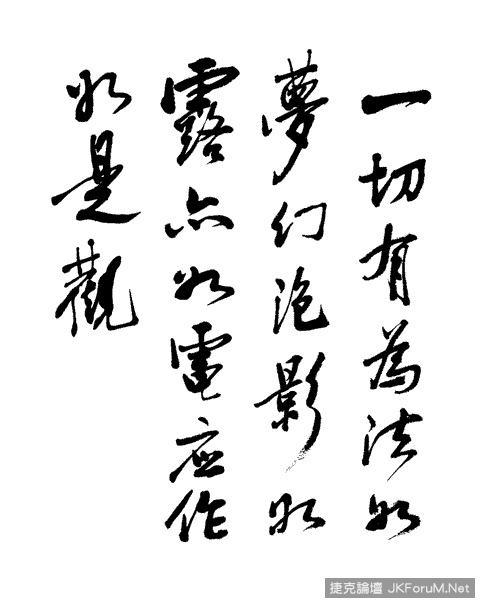 一切有為法如
夢幻泡影如
露亦如電应作
如是觀
捷克論壇 JKForuM.Net